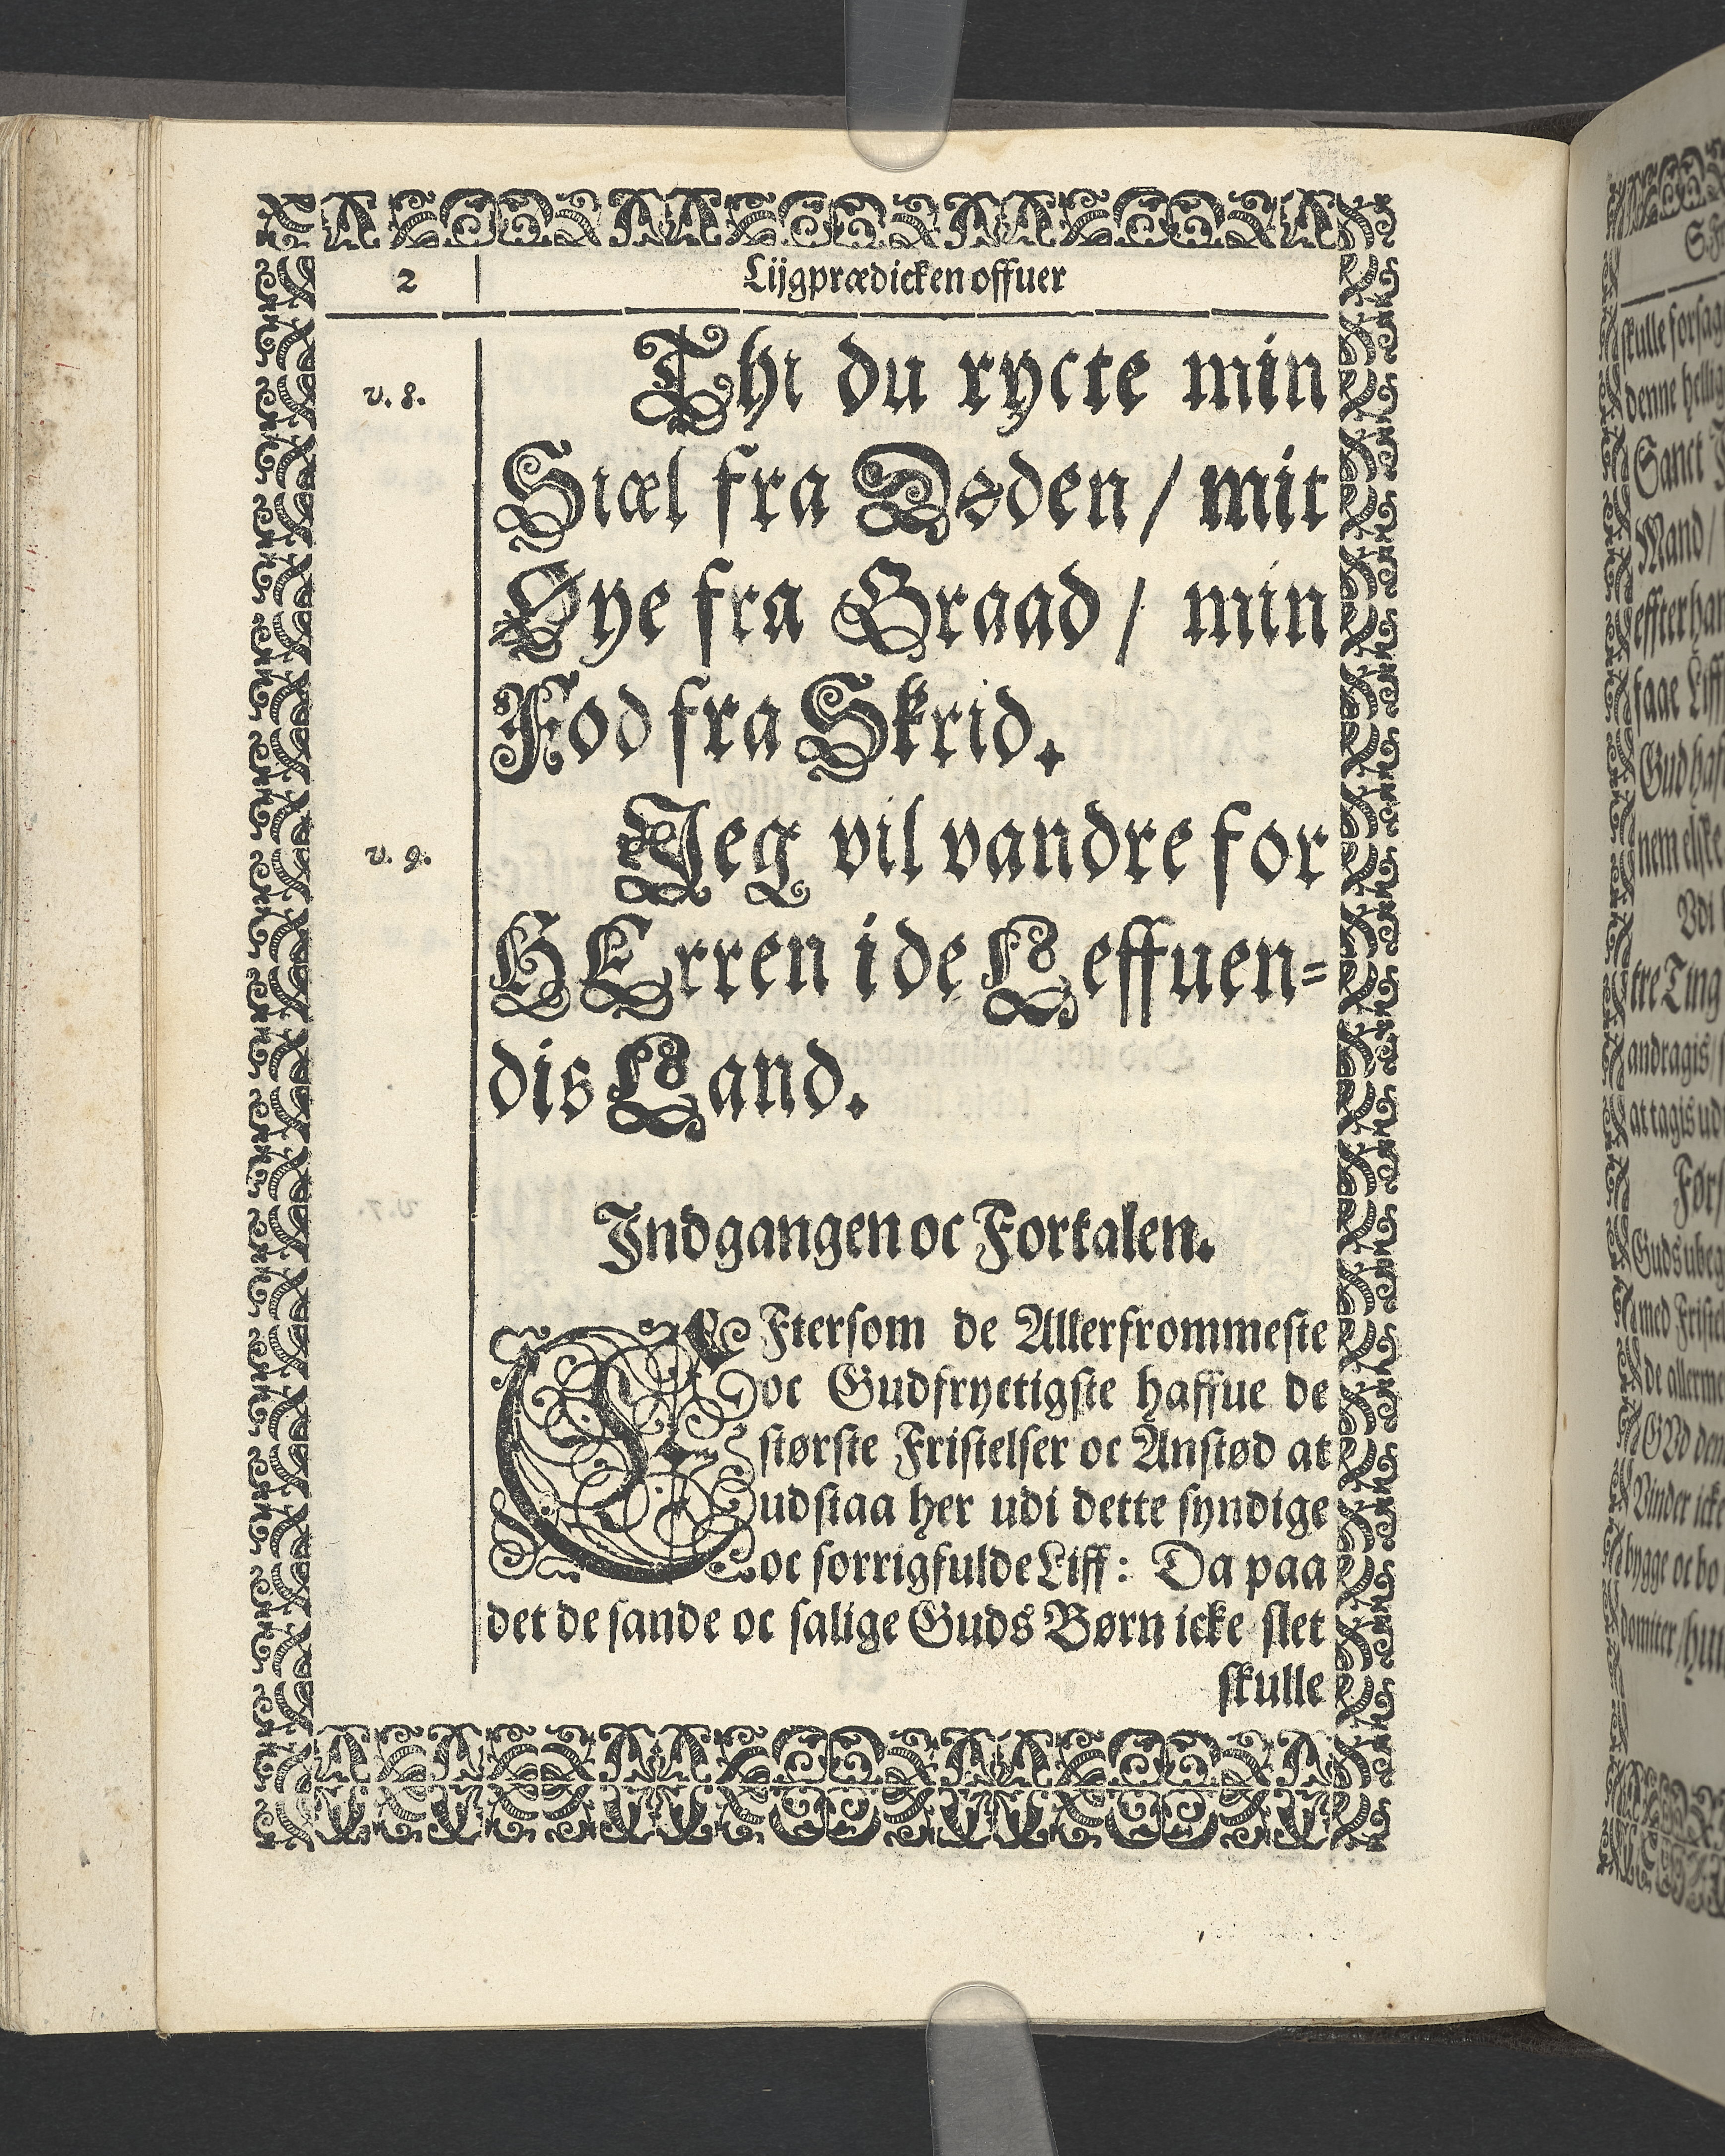 2
Lijgprædicken offuer
v. 8.
Thi du rycte min
Siæl fra Døden / mit
Øye fra Graad / min
Fod fra Skrid.
v. 9.
Jeg vil vandre for
HErren i de Leffuen-
dis Land.
Indgangen oc Fortalen.
EFtersom de Allerfrommeste
oc Gudfryctigste haffue de
største Fristelser oc Anstød at
udstaa her udi dette syndige
oc sorrigfulde Liff: Da paa
det de sande oc salige Guds Børn icke slet
skulle
skulle forsag
denne hellig
Sanct
Mand /
effter han
faae Liff
Gud haf
nem elske
Vdi
tre Ting
andragis /
at tagis ud
Først
Guds ubeg
med Fristel
de allerme
GVd den
Vinder icke
bygge oc bo